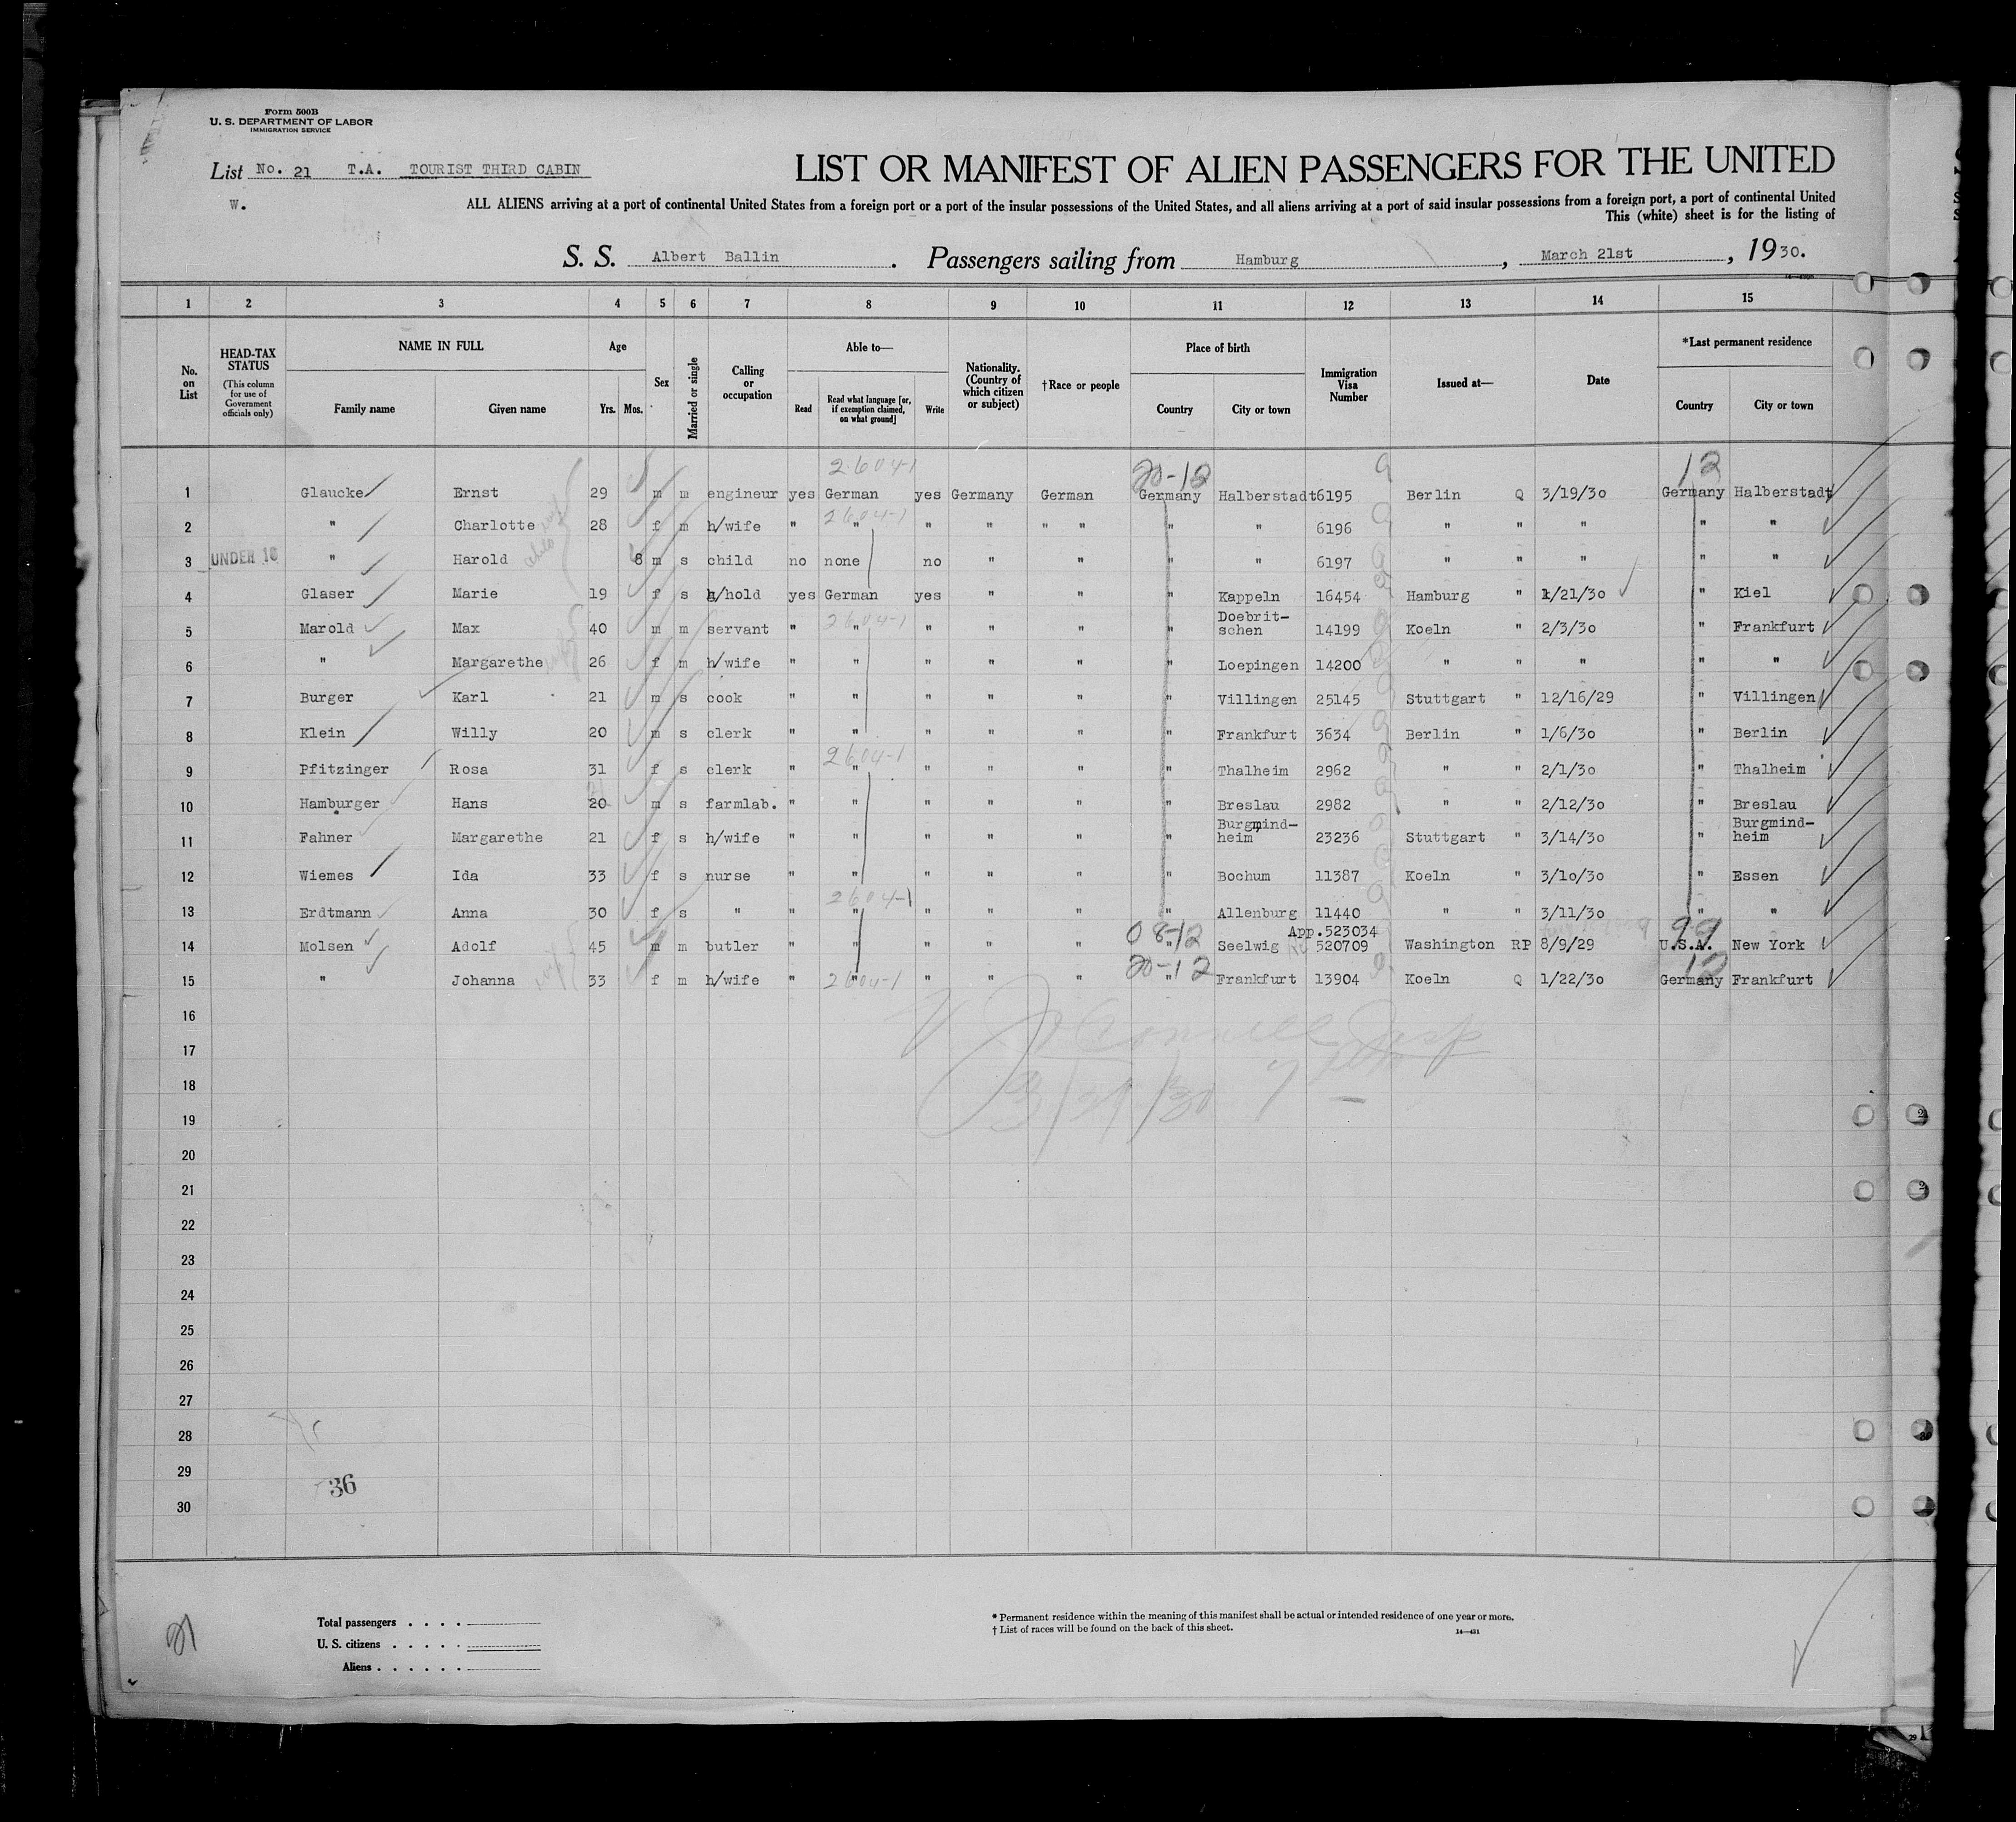 Form 500B
U. S. DEPARTMENT OF LABOR
IMMIGRATION SERVICE
List No. 21 T.A. TOURIST THIRD CABIN
W.
LIST OR MANIFEST OF ALIEN PASSENGERS FOR THE UNITED
ALL ALIENS arriving at a port of continental United States from a foreign port or a port of the insular possessions of the United States, and all aliens arriving at a port of said insular possessions from a foreign port, a port of continental United
This (white) sheet is for the listing of
S. S. Albert Ballin. Passengers sailing from Hamburg, March 21st, 1930.
1 2 3 4 5 6 7 8 9 10 11 12 13 14 15
No. on List
HEAD-TAX STATUS (This column for use of Government officials only)
NAME IN FULL
Family name Given name
Age
Yrs. Mos.
Sex
Married or single
Calling or occupation
Able to—
Read Read what language [or, if exemption claimed, on what ground] Write
Nationality. (Country of which citizen or subject)
†Race or people
Place of birth
Country City or town
Immigration Visa Number
Issued at—
Date
*Last permanent residence
Country City or town
2604-1 20-12 12
1 Glaucke Ernst 29 m m engineur yes German yes Germany German Germany Halberstadt 6195 Berlin Q 3/19/30 Germany Halberstadt
2604-1
2 " Charlotte 28 f m h/wife " " " " " " " " 6196 " " " " "
3 UNDER 16 " Harold 8 m s child no none no " " " " 6197 " " " " "
4 Glaser Marie 19 f s h/hold yes German yes " " " Kappeln 16454 Hamburg " 1/21/30 " Kiel
2604-1
5 Marold Max 40 m m servant " " " " " " Doebrit-
schen 14199 Koeln " 2/3/30 " Frankfurt
6 " Margarethe 26 f m h/wife " " " " " " Loepingen 14200 " " " " "
7 Burger Karl 21 m s cook " " " " " " Villingen 25145 Stuttgart " 12/16/29 " Villingen
8 Klein Willy 20 m s clerk " " " " " " Frankfurt 3634 Berlin " 1/6/30 " Berlin
2604-1
9 Pfitzinger Rosa 31 f s clerk " " " " " " Thalheim 2962 " " 2/1/30 " Thalheim
10 Hamburger Hans 20 m s farmlab. " " " " " " Breslau 2982 " " 2/12/30 " Breslau
11 Fahner Margarethe 21 f s h/wife " " " " " " Burgmind-
heim 23236 Stuttgart " 3/14/30 " Burgmind-
heim
12 Wiemes Ida 33 f s nurse " " " " " " Bochum 11387 Koeln " 3/10/30 " Essen
2604-1
13 Erdtmann Anna 30 f s " " " " " " " Allenburg 11440 " " 3/11/30 " "
08-12 App.523034 99
14 Molsen Adolf 45 m m butler " " " " " " Seelwig 520709 Washington RP 8/9/29 U.S.A. New York
20-12 12
15 " Johanna 33 f m h/wife " 2604-1 " " " " " Frankfurt 13904 Koeln Q 1/22/30 Germany Frankfurt
16
17
18
3/29/30
19
20
21
22
23
24
25
26
27
28
29
36
30
21
Total passengers
U. S. citizens
Aliens
* Permanent residence within the meaning of this manifest shall be actual or intended residence of one year or more.
† List of races will be found on the back of this sheet.
14—431